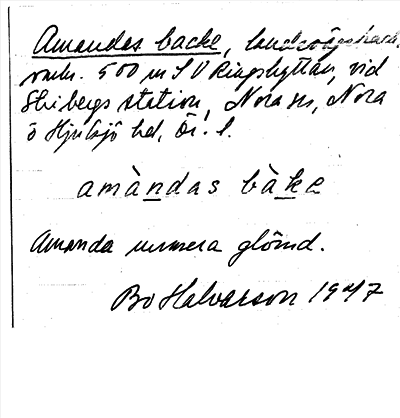 Amandas backe, landsvägsbacke,
omkr. 500 m SV Ringshyttan, vid
Stribergs station, Nora sn, Nora
o Hjulsjö bd, Ör. l.
amàndas bàke
Amanda numera glömd.
Bo Halvarson 1947